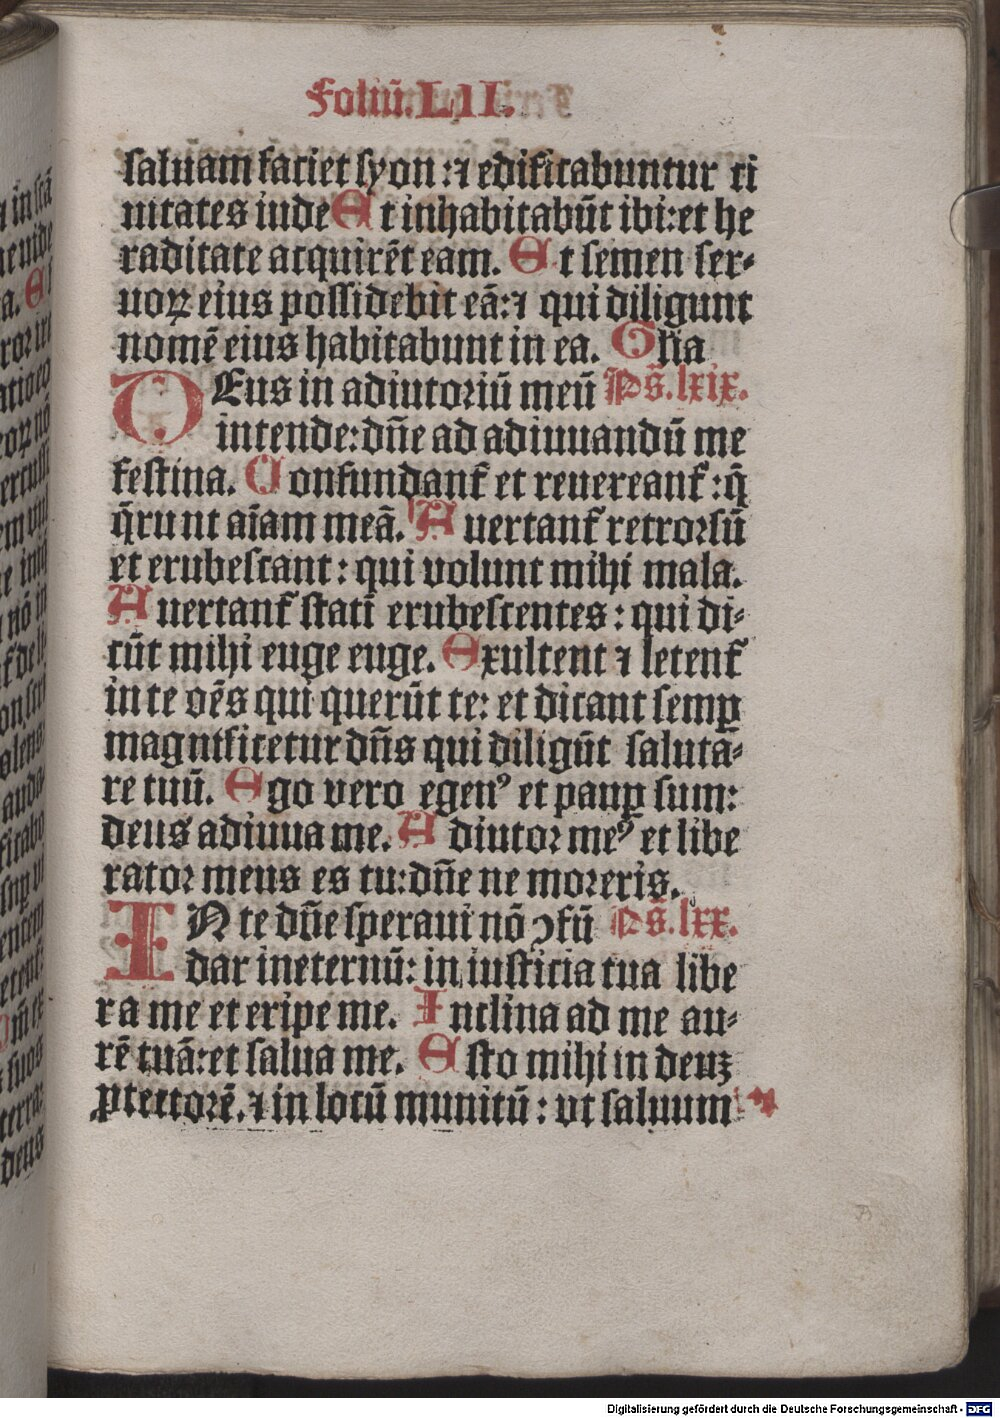 Foliū. LII.
saluam faciet syon : ⁊ edificabuntur ci
uitates iude Et inhabitabūt ibi : et he
raditate acquirēt eam. Et semen ser⸗
uoꝝ eius possidebit eā : ⁊ qui diligunt
nomē eius habitabunt in ea. Gl̄ia
DEus in adiutoriū meū Ps̄. lxix.
intende : dn̄e ad adiuuandū me
festina. Confundanť et reuereanť : q̄
q̄runt aīam meā. Auertanť retrorsū
et erubescant : qui volunt mihi mala.
Auertanť statī erubescentes : qui di⸗
cūt mihi euge euge. Exultent ⁊ letenť
in te oēs qui querūt te : et dicant semꝑ
magnificetur dn̄s qui diligūt saluta⸗
re tuū. Ego vero egenꝰ et pauꝑ sum :
deus adiuua me. Adiutor meꝰ et libe
rator meus es tu : dn̄e ne moreris.
IN te dn̄e speraui nō ꝯfū Ps̄. lxx.
dar ineternū : in iusticia tua libe
ra me et eripe me. Inclina ad me au⸗
rē tuā : et salua me. Esto mihi in deuꝫ
ꝓtectorē. ⁊ in locū munitū : vt saluum
Digitalisierung gefördert durch die Deutsche Forschungsgemeinschaft - DFG